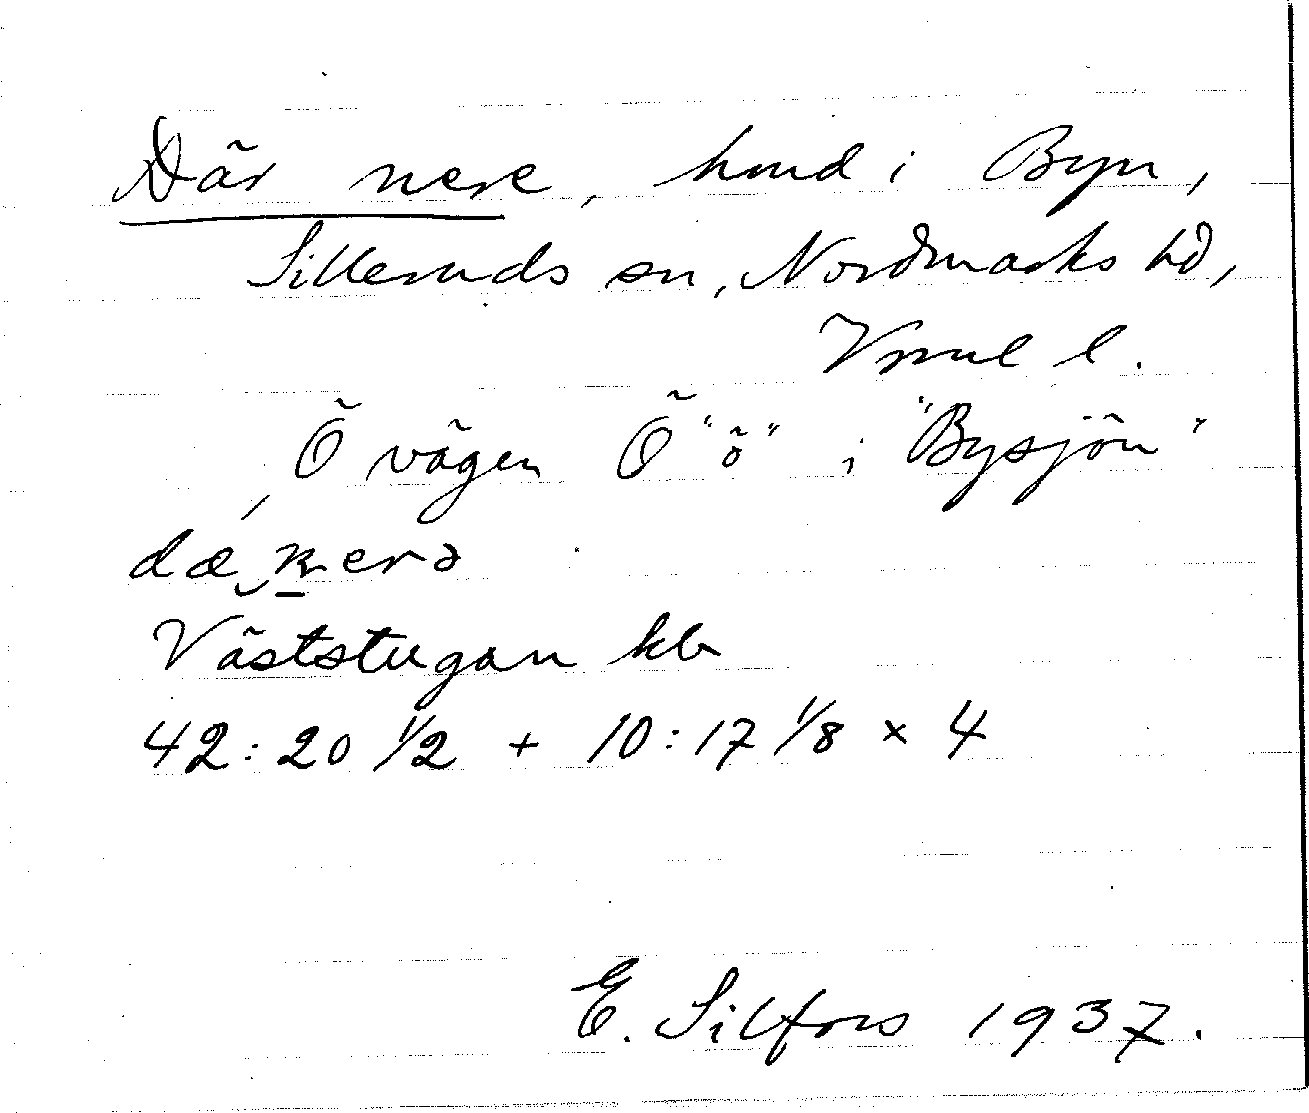 Där nere, hmd i Byn,
Silleruds sn, Nordmarks hd,
Vrml l.
Ö vägen Ö "ö" i "Bysjön"
Väststugan kbr
42:20 1/2 + 10:17 1/8 × 4
E. Silfors 1937.